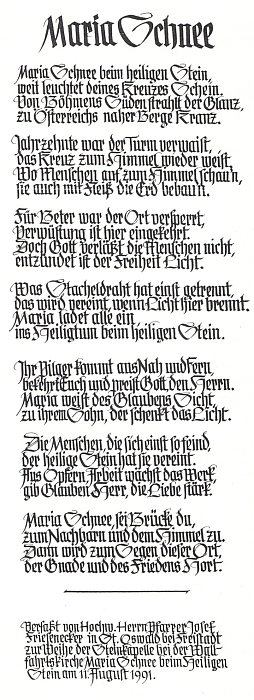 Maria Schnee
Maria Schnee beim heiligen Stein,
weit leuchtet deines Kreuzes Schein.
Von Böhmens Süden strahlt der Glanz,
zu Österreichs naher Berge Kranz.
Jahrzehnte war der Turm verwaist,
das Kreuz zum Himmel wieder weist.
Wo Menschen auf zum Himmel schau'n,
sie auch mit Fleiß die Erd bebau'n.
Für Beter war der Ort versperrt,
Verwüstung ist hier eingekehrt.
Doch Gott verläßt die Menschen nicht,
entzündet ist der Freiheit Licht.
Was Stacheldraht hat einst getrennt,
das wird vereint, wenn Licht hier brennt.
Maria ladet alle ein
ins Heiligtum beim heiligen Stein.
Ihr Pilger kommt aus Nah und Fern,
bekehrt Euch und preist Gott, den Herrn.
Maria weist des Glaubens Sicht,
zu ihrem Sohn, der schenkt das Licht.
Die Menschen, die sich einst so feind,
der heilige Stein hat sie vereint.
Aus Opfern, Arbeit wächst das Werk,
gib Glauben Herr, die Liebe stärk.
Maria Schnee, sei Brücke du,
zum Nachbarn und dem Himmel zu.
Dann wird zum Segen dieser Ort,
der Gnade und des Friedens Hort.
Verfaßt von Hochw. Herrn Pfarrer Josef
Friesenecker in St. Oswald bei Freistadt
zur Weihe der Steinkapelle bei der Wall-
fahrtskirche Maria Schnee beim Heiligen
Stein am 11. August 1991.